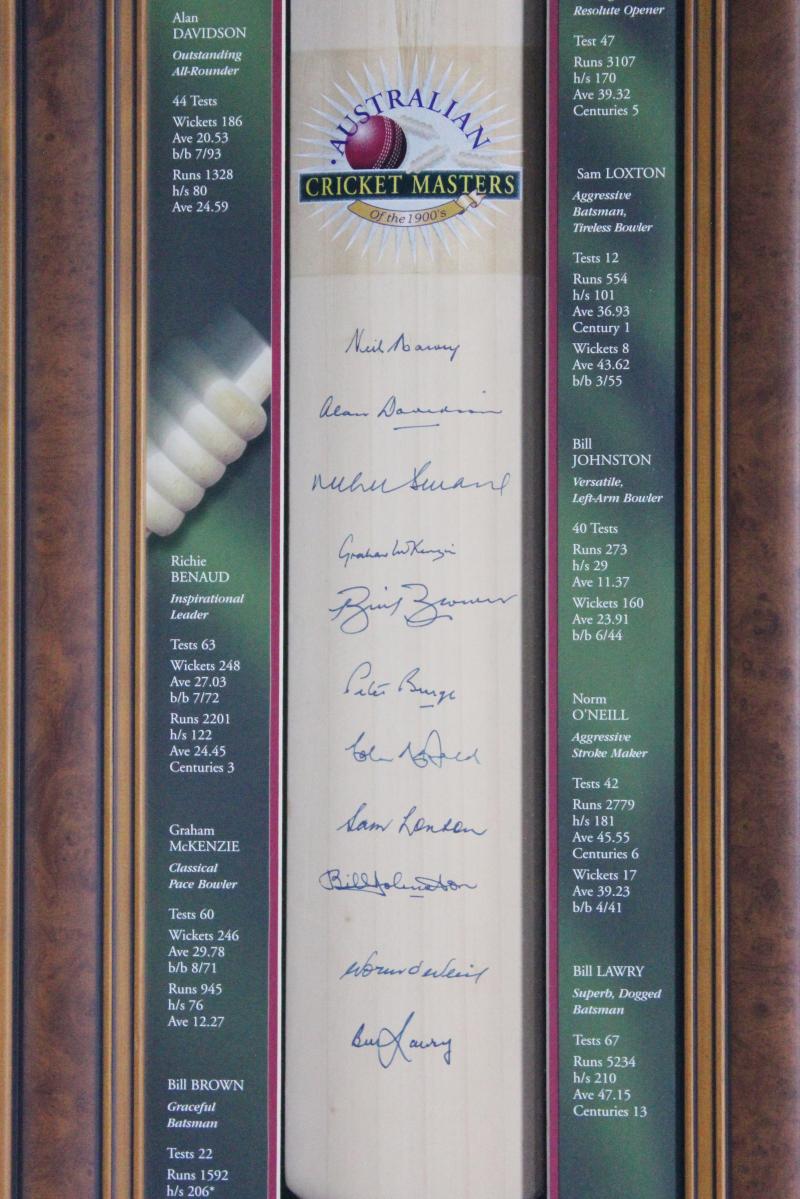 Alan
DAVIDSON
Outstanding
All-Rounder
44 Tests
Wickets 186
Ave 20.53
b/b 7/93
Runs 1328
h/s 80
Ave 24.59
Richie
BENAUD
Inspirational
Leader
Tests 63
Wickets 248
Ave 27.03
b/b 7/72
Runs 2201
h/s 122
Ave 24.45
Centuries 3
Graham
McKENZIE
Classical
Pace Bowler
Tests 60
Wickets 246
Ave 29.78
b/b 8/71
Runs 945
h/s 76
Ave 12.27
Bill BROWN
Graceful
Batsman
Tests 22
Runs 1592
h/s 206*
·AUSTRALIAN
CRICKET MASTERS
Of the 1900's
Neil Harvey
Alan Davidson
Richie Benaud
Graham McKenzie
Bill Brown
Peter Burge
Colin McDonald
Sam Loxton
Bill Johnston
Norm O'Neill
Bill Lawry
Resolute Opener
Test 47
Runs 3107
h/s 170
Ave 39.32
Centuries 5
Sam LOXTON
Aggressive
Batsman,
Tireless Bowler
Tests 12
Runs 554
h/s 101
Ave 36.93
Century 1
Wickets 8
Ave 43.62
b/b 3/55
Bill
JOHNSTON
Versatile,
Left-Arm Bowler
40 Tests
Runs 273
h/s 29
Ave 11.37
Wickets 160
Ave 23.91
b/b 6/44
Norm
O'NEILL
Aggressive
Stroke Maker
Tests 42
Runs 2779
h/s 181
Ave 45.55
Centuries 6
Wickets 17
Ave 39.23
b/b 4/41
Bill LAWRY
Superb, Dogged
Batsman
Tests 67
Runs 5234
h/s 210
Ave 47.15
Centuries 13